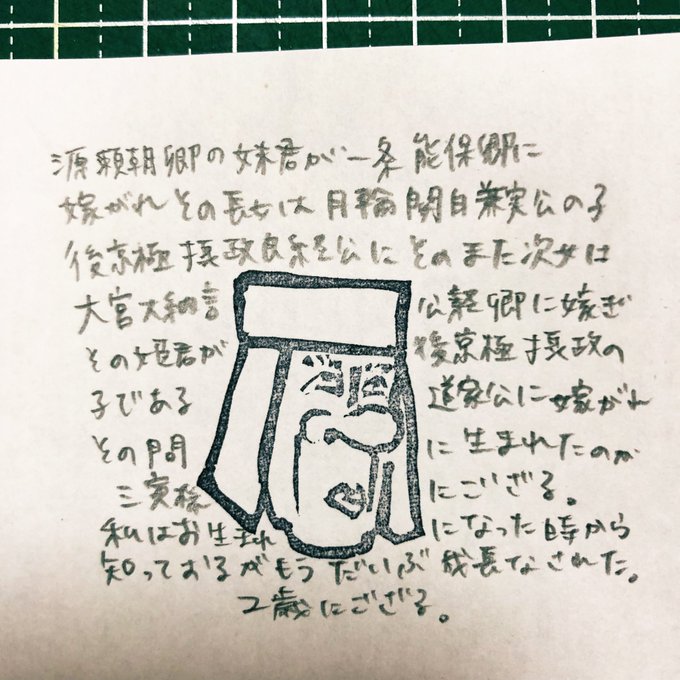 源頼朝卿の妹君が一条 能保卿に
嫁がれ その長女は 月輪関白兼実公の子
後京極摂政良経公に そのまた次女は
大宮大納言 公経卿に嫁ぎ
その姫君が 後京極摂政の
子である 道家公に嫁がれ
その間 に生まれたのが
三寅様 にござる。
私はお生まれ になった時から
知っておるがもうだいぶ成長なされた。
2歳にござる。